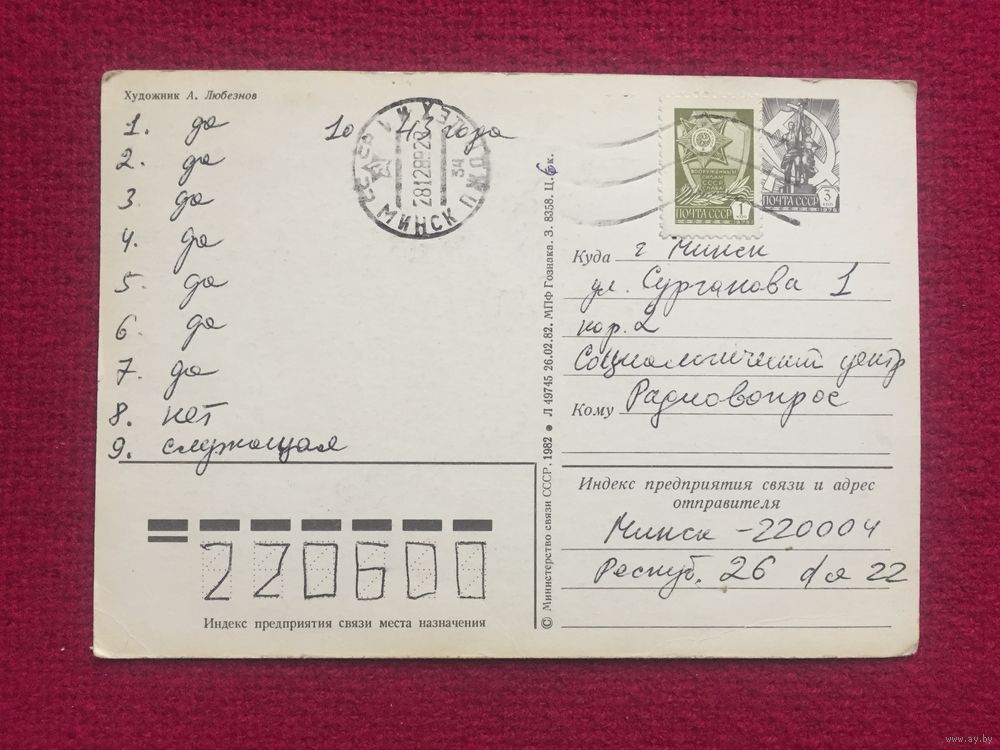 Художник А. Любезнов
1. да
2. да
3. да
4. да
5. да
6. да
7. да
8. нет
9. служащая
10 43 года
МИНСК
ПОЧТА СССР 1
ПОЧТА СССР 3
Куда г Минск
ул. Сурганова 1
кор. 2
Социологический центр
Кому Радиовопрос
Индекс предприятия связи и адрес
отправителя
Минск - 220004
Респуб. 26 22
220600
Индекс предприятия связи места назначения
© Министерство связи СССР. 1982 ● Л 49745 26.02.82. МПФ Гознака. З. 8358. Ц. 6 к.
www.ay.by